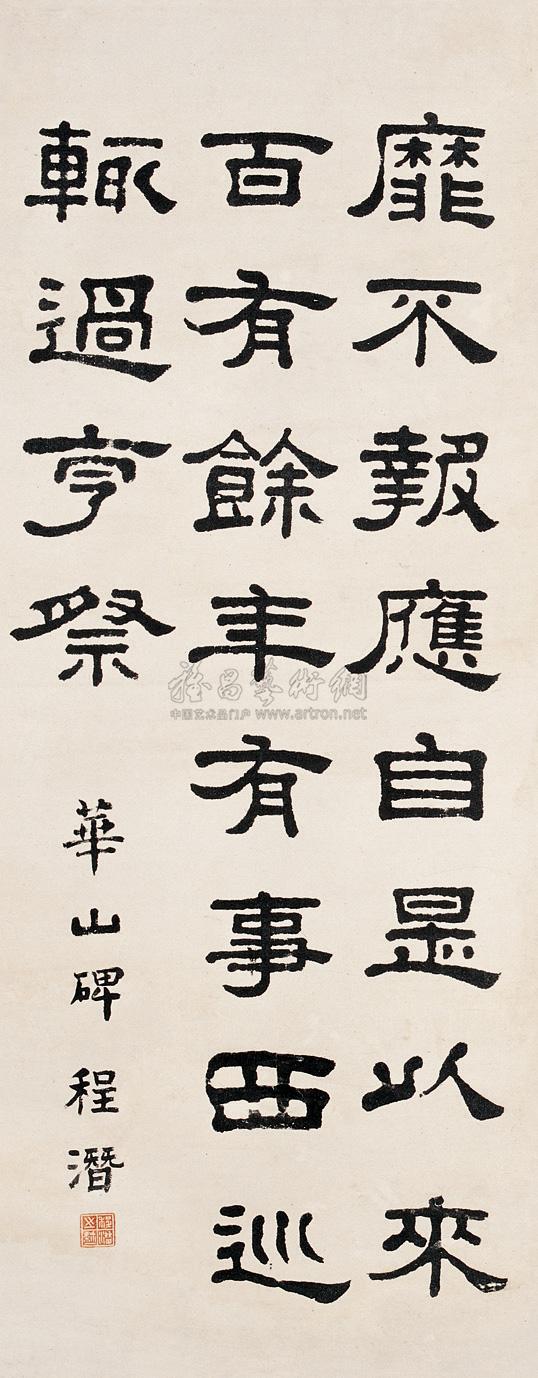 靡不報應自是以來
百有餘年有事西巡
輒過亨祭
華山碑 程潛
雅昌藝術網
中国艺术品门户 www.artron.net